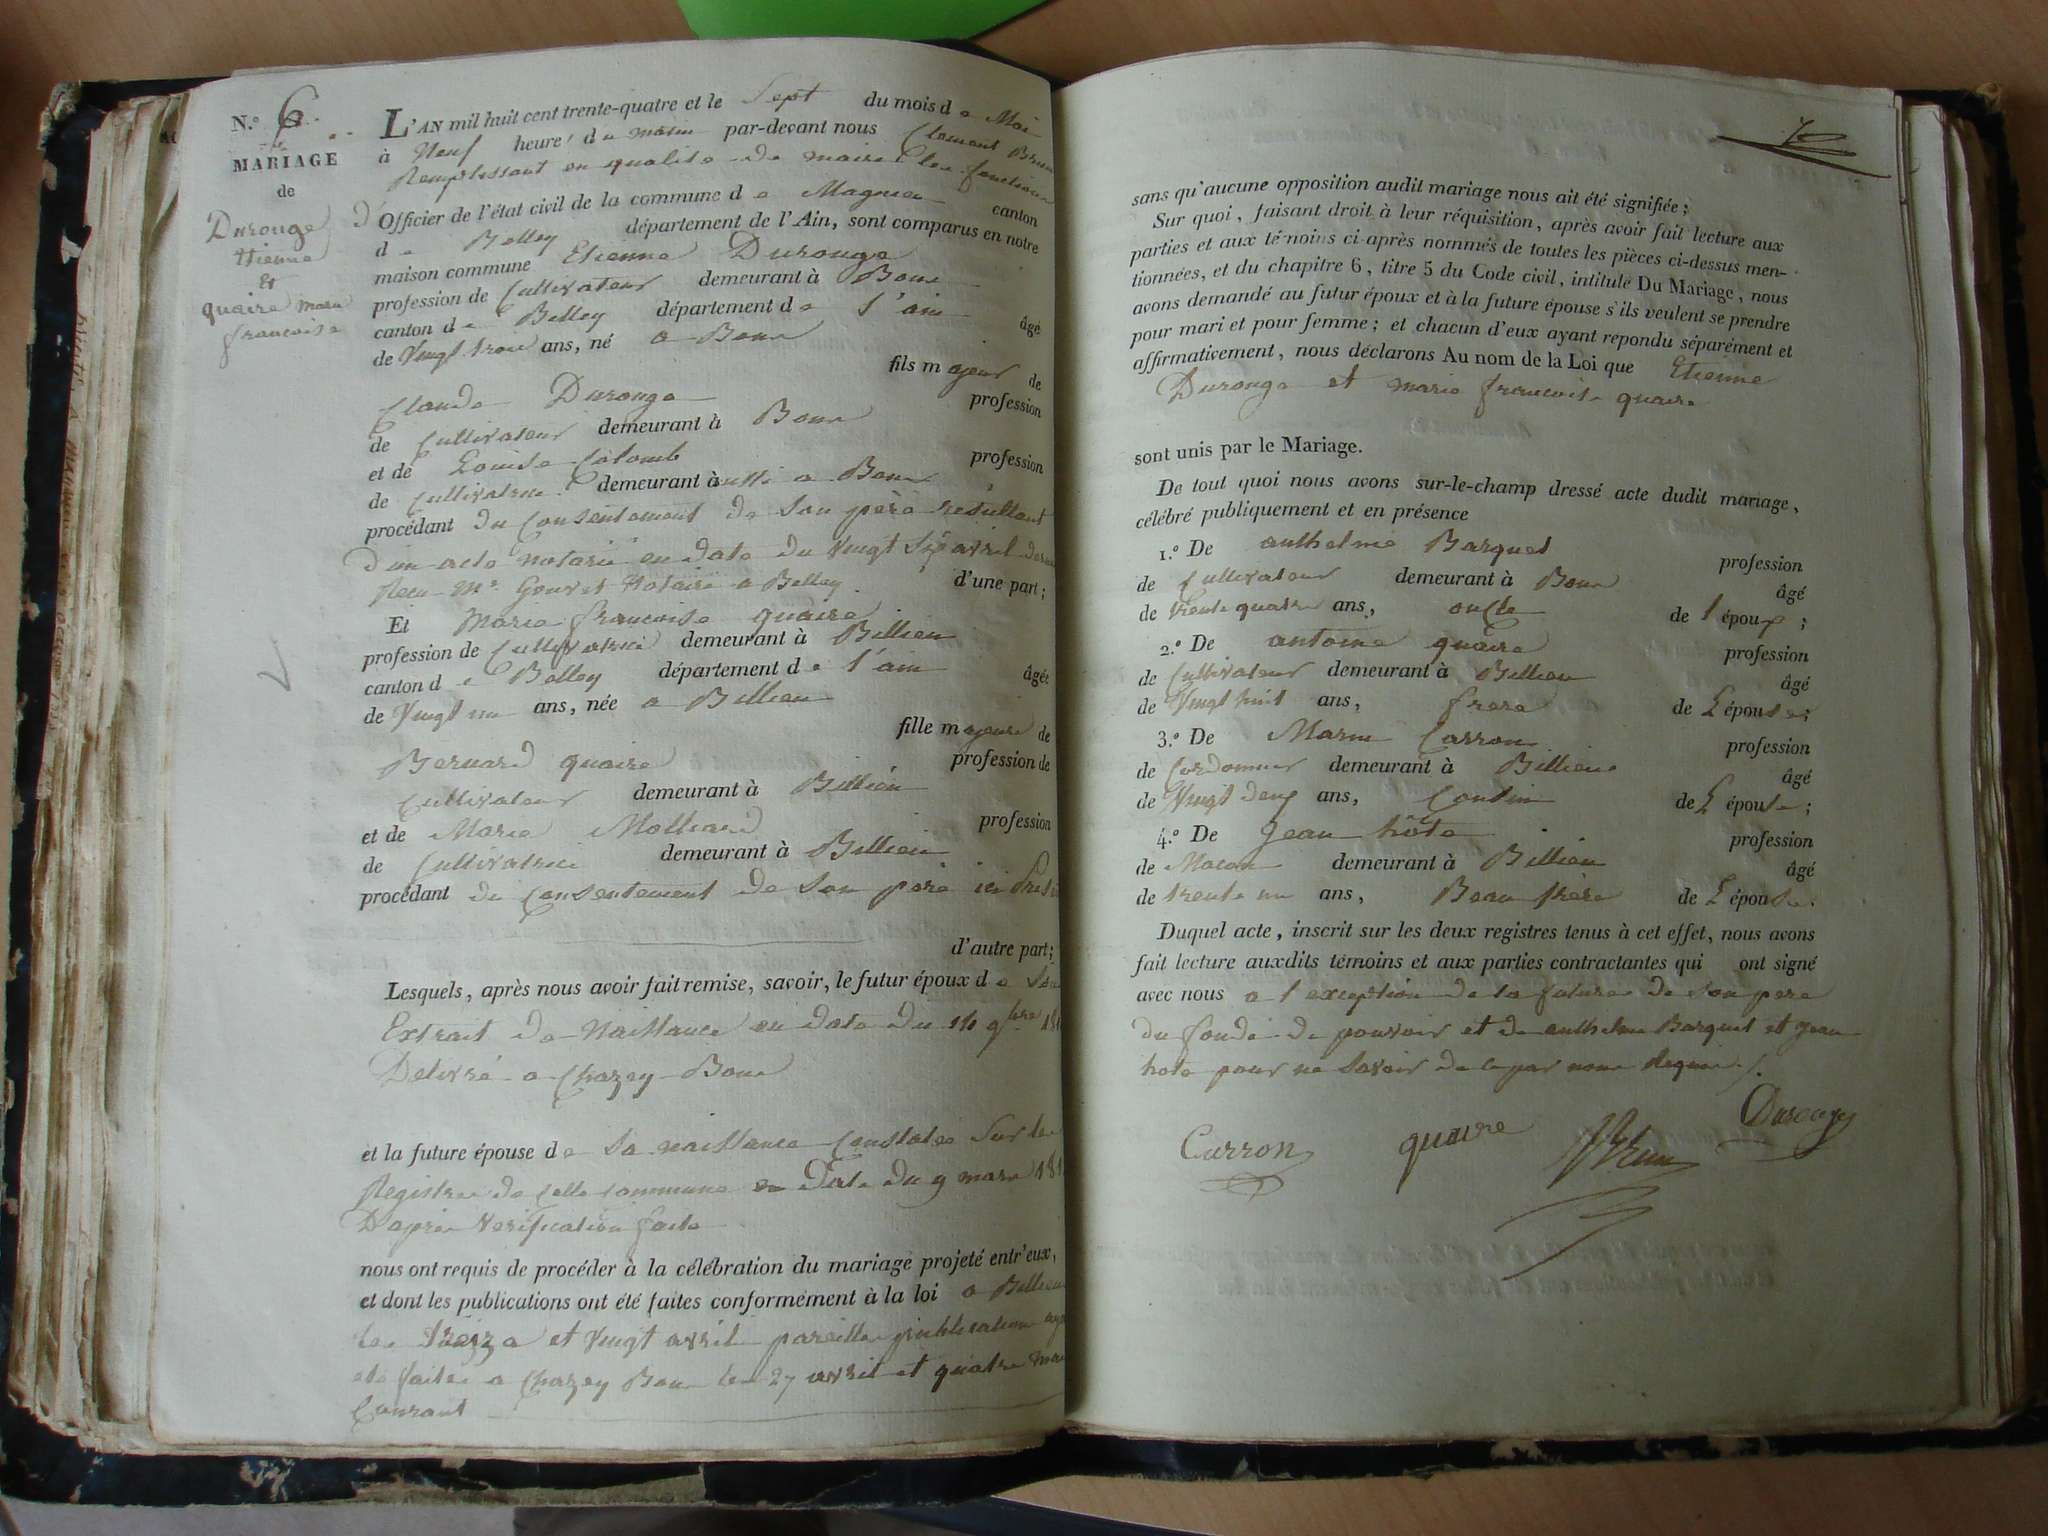 N.º 6
MARIAGE
de
Durouge
Etienne
Et
quaire marie
francoise
L'AN mil huit cent trente-quatre et le Sept du mois de Mai
à Neuf heure du matin par-devant nous Clement Brun
Remplissant en qualité de maire les fonctions
d'Officier de l'état civil de la commune de Magnieu canton
de Belley département de l'Ain, sont comparus en notre
maison commune Etienne Durouge
profession de Cultivateur demeurant à Bons
canton de Belley département de l'ain âgé
de Vingt trois ans, né a Bons
fils majeur de
Claude Durouge profession
de Cultivateur demeurant à Bons
et de Louise Colomb profession
de Cultivatrice demeurant à aussi a Bons
procédant du Consentement de Son père resultant
d'un acte notarié en date du Vingt Six avril
Recu Me Gouvet Notaire a Belley d'une part;
Et Marie francoise quaire
profession de Cultivatrice demeurant à Billieu
canton de Belley département de l'ain âgée
de Vingt un ans, née a Billieu
fille majeure de
Bernard quaire profession de
Cultivateur demeurant à Billieu
et de Marie Molliard profession
de Cultivatrice demeurant à Billieu
procédant du Consentement de Son père ici
d'autre part;
Lesquels, après nous avoir fait remise, savoir, le futur époux de Son
Extrait de Naissance en date du 9bre
Délivré a Chazey Bons
et la future épouse de Sa naissance Constatée Sur les
Registres de cette commune en Date du 9 mars
Dapres Verification faite
nous ont requis de procéder à la célébration du mariage projeté entr'eux,
et dont les publications ont été faites conformément à la loi a Billieu
les Treize et Vingt avril pareilles publications
été faites a Chazey Bons les 27 avril et quatre mai
Courant
sans qu'aucune opposition audit mariage nous ait été signifiée;
Sur quoi, faisant droit à leur réquisition, après avoir fait lecture aux
parties et aux témoins ci-après nommés de toutes les pièces ci-dessus men-
tionnées, et du chapitre 6, titre 5 du Code civil, intitulé Du Mariage, nous
avons demandé au futur époux et à la future épouse s'ils veulent se prendre
pour mari et pour femme; et chacun d'eux ayant repondu séparément et
affirmativement, nous déclarons Au nom de la Loi que Etienne
Durouge et marie francoise quaire
sont unis par le Mariage.
De tout quoi nous avons sur-le-champ dressé acte dudit mariage,
célébré publiquement et en présence
1.º De anthelme Barquet profession
de Cultivateur demeurant à Bons âgé
de trente quatre ans, oncle de l'époux;
2.º De antoine quaire profession
de Cultivateur demeurant à Billieu âgé
de Vingt huit ans, frere de L'épouse;
3.º De Marin Carron profession
de Cordonnier demeurant à Billieu âgé
de Vingt deux ans, Cousin de L'épouse;
4.º De Jean hôte profession
de Macon demeurant à Billieu âgé
de trente un ans, Beau frère de L'épouse.
Duquel acte, inscrit sur les deux registres tenus à cet effet, nous avons
fait lecture auxdits témoins et aux parties contractantes qui ont signé
avec nous a l'exception de la future de Son pere
du fondé de pouvoir et de anthelme Barquet et Jean
hote pour ne Savoir de ce par nous requis
Carron quaire Brun Durouge